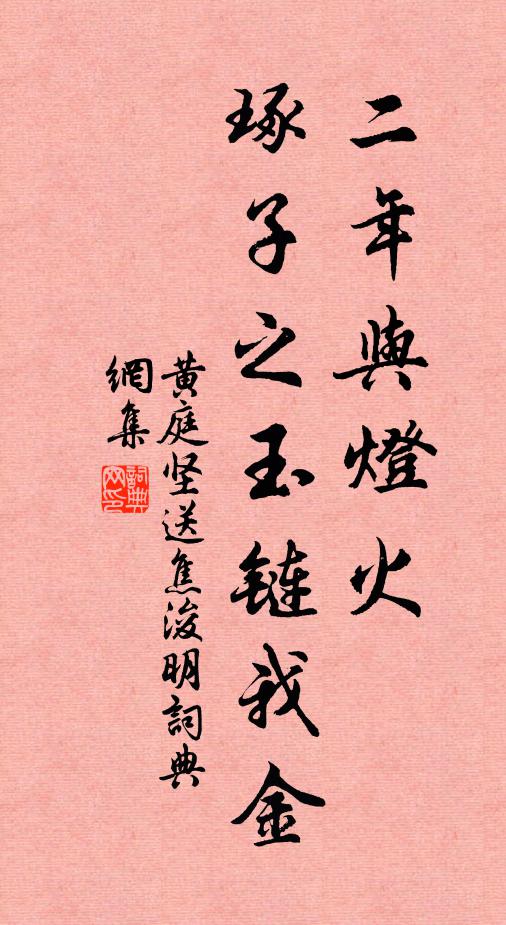 二年與燈火
琢子之玉鏈我金
黄庭坚送焦浚明詞典
網集
詞典网印